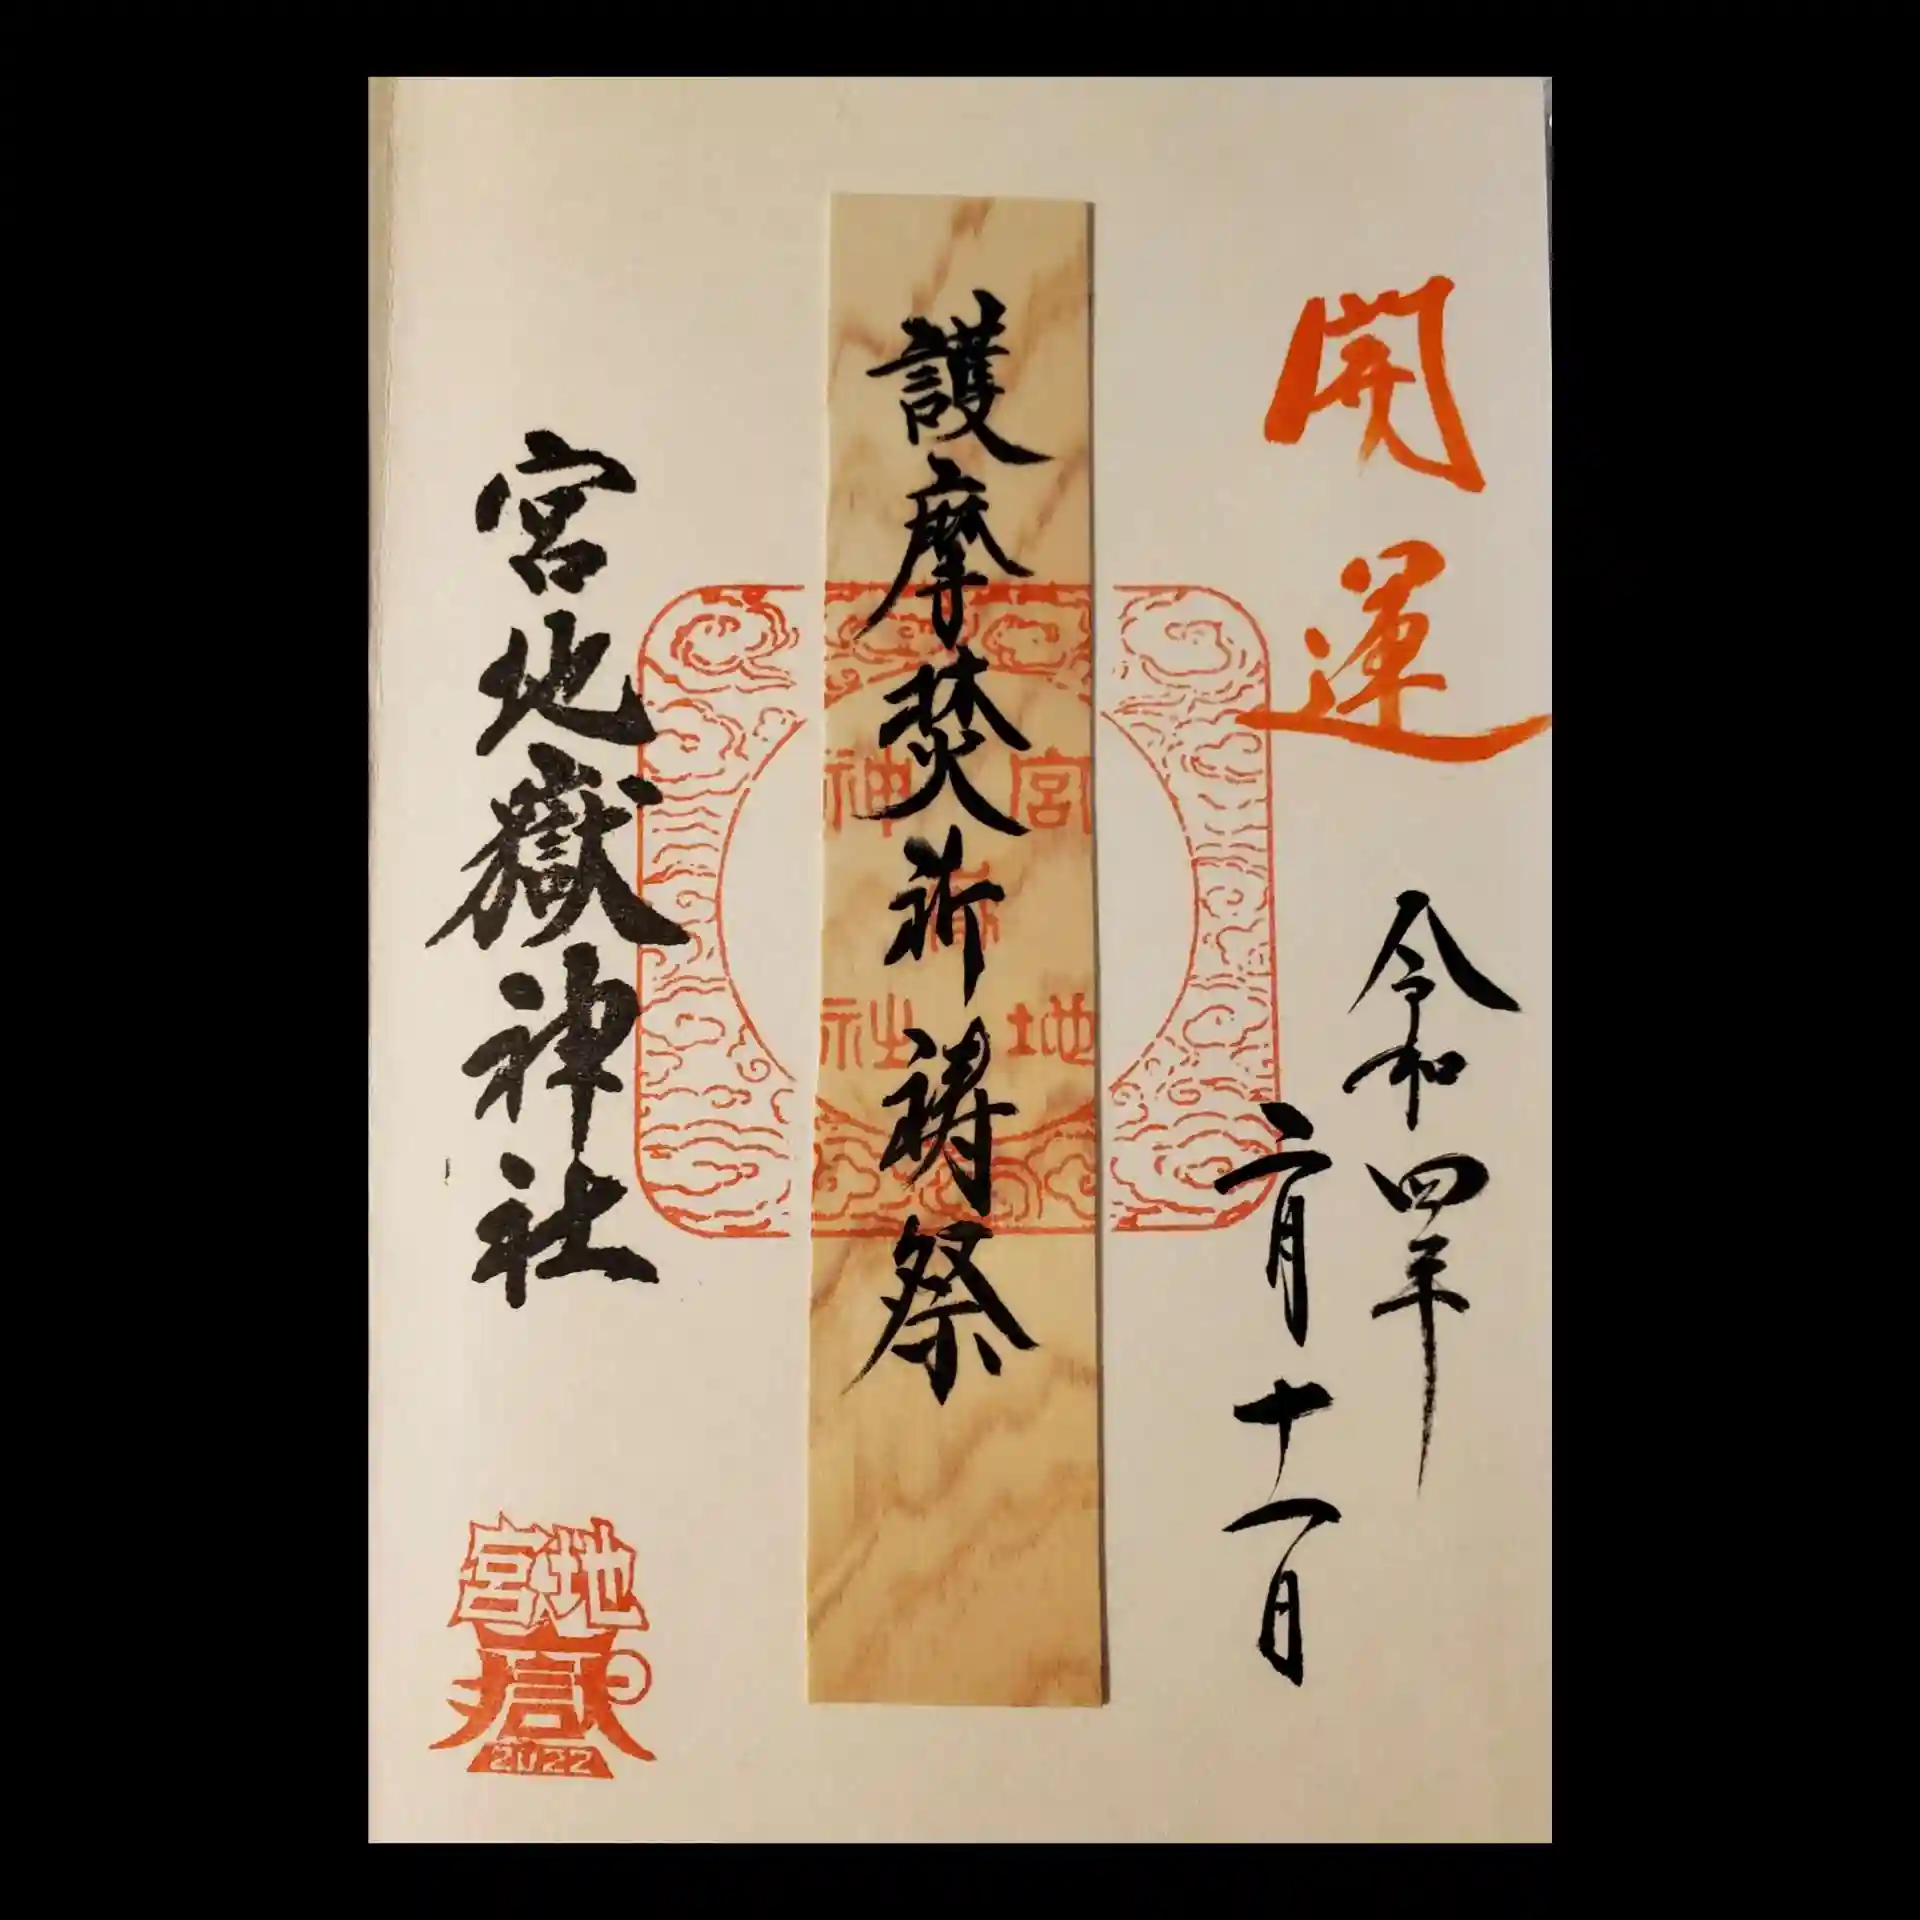 開運
令和四年
二月十一日
護摩焚祈祷祭
宮地嶽神社
宮地
神社
宮地
嶽
2022